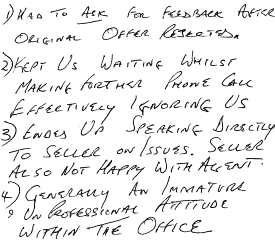 1) HAD TO ASK FOR FEEDBACK AFTER
ORIGINAL OFFER REJECTED.
2) KEPT US WAITING WHILST
MAKING FURTHER PHONE CALL
EFFECTIVELY IGNORING US
3) ENDED UP SPEAKING DIRECTLY
TO SELLER ON ISSUES. SELLER
ALSO NOT HAPPY WITH AGENT.
4) GENERALLY AN IMMATURE
& UNPROFESSIONAL ATTITUDE
WITHIN THE OFFICE